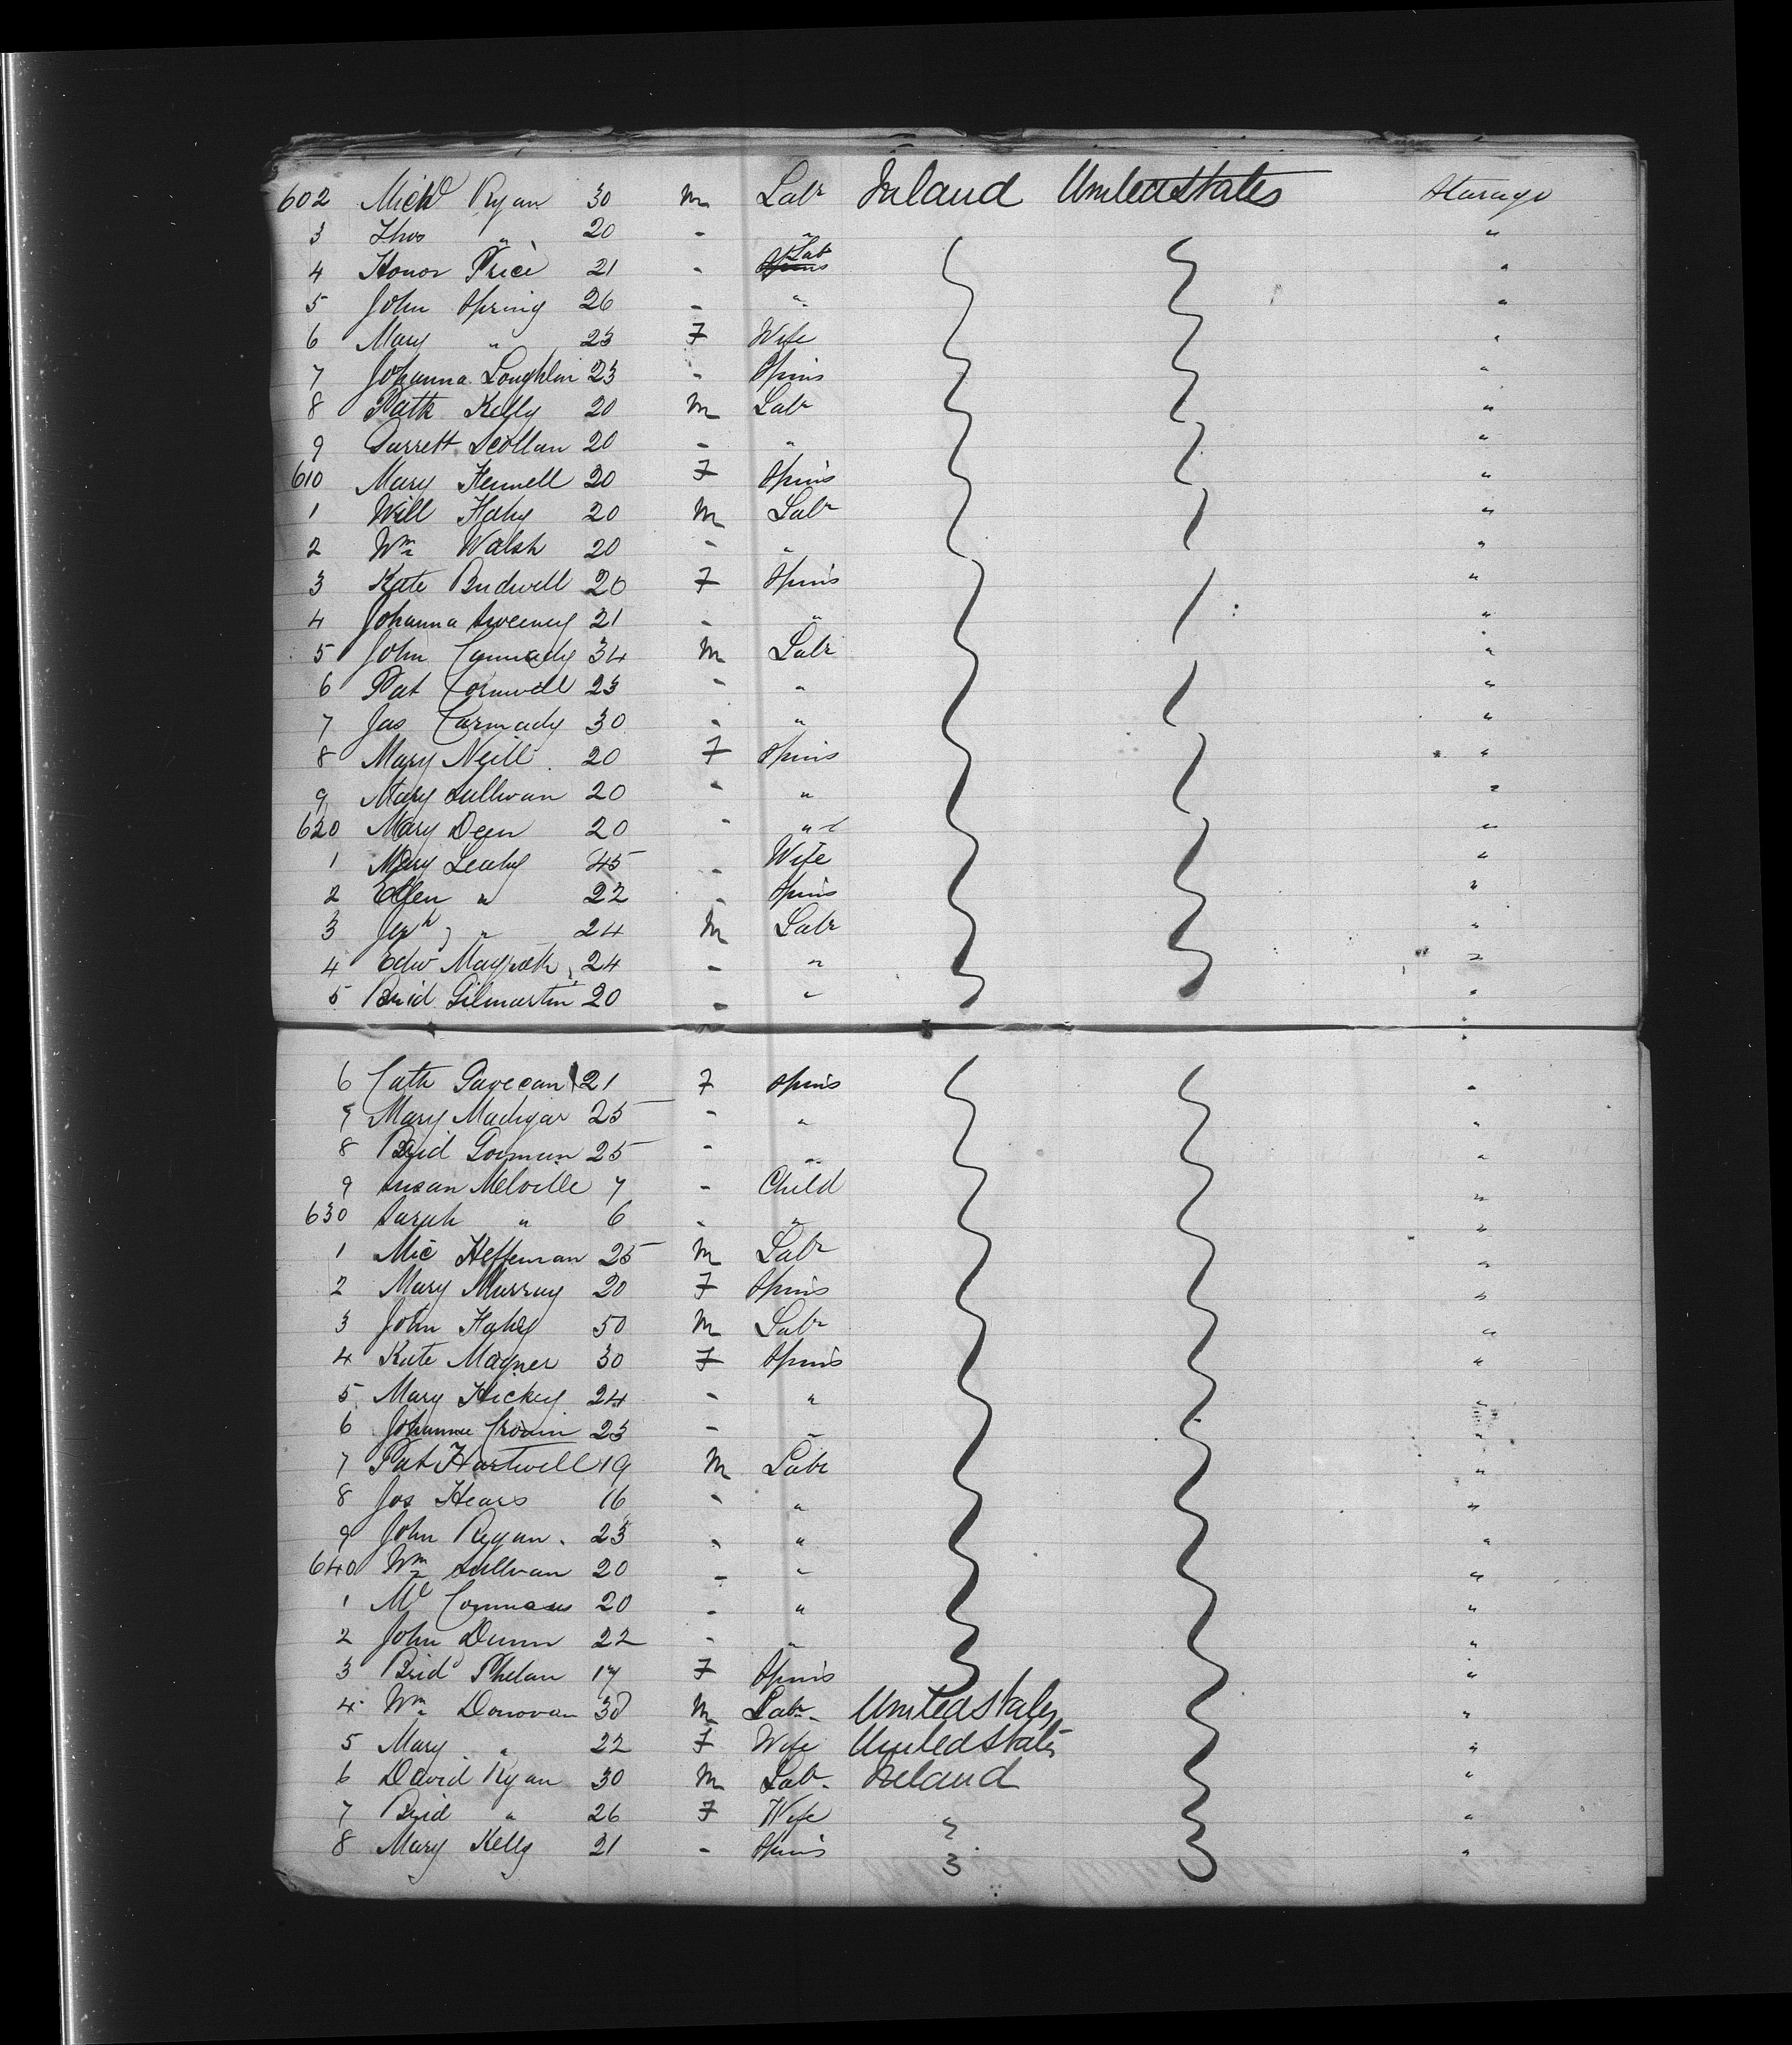 602 Michl Ryan 30 m Labr Ireland United States Steerage
3 Thos " 20 - " "
4 Honor Price 21 - Labr "
5 John Spring 26 - " "
6 Mary " 23 F Wife "
7 Johanna Loughlin 23 - Spins "
8 Patk Kelly 20 m Labr "
9 Garrett Scollan 20 - " "
610 Mary Fennell 20 F Spins "
1 Will Fahy 20 m Labr "
2 Wm Walsh 20 - " "
3 Kate Bridwell 20 F Spins "
4 Johanna Sweeney 21 - " "
5 John 34 m Labr "
6 Pat Cornwell 23 - " "
7 Jas Carmady 30 - " "
8 Mary Neill 20 F Spins "
9 Mary Sullivan 20 - " "
620 Mary 20 - " "
1 Mary Leahy 45 - Wife "
2 Ellen " 22 - Spins "
3 " 24 m Labr "
4 Edw Magrath 24 - " "
5 Brid Gilmartin 20 - " "
6 Cath 21 F Spins "
7 Mary Madigan 25 - " "
8 Brid Gorman 25 - " "
9 Susan Melville 7 - Child "
630 Sarah " 6 - " "
1 Mic Heffernan 25 m Labr "
2 Mary Murray 20 F Spins "
3 John Fahey 50 m Labr "
4 Kate Magner 30 F Spins "
5 Mary Hickey 24 - " "
6 Johanna Cronin 23 - " "
7 Pat Hartwell 19 m Labr "
8 Jos Hears 16 - " "
9 John Regan 23 - " "
640 Wm Sullivan 20 - " "
1 Ml 20 - " "
2 John Dunn 22 - " "
3 Brid Phelan 17 F Spins "
4 Wm Donovan 30 m Labr United States "
5 Mary " 22 F Wife United States "
6 David Ryan 30 m Labr Ireland "
7 Brid " 26 F Wife " "
8 Mary Kelly 21 - Spins "